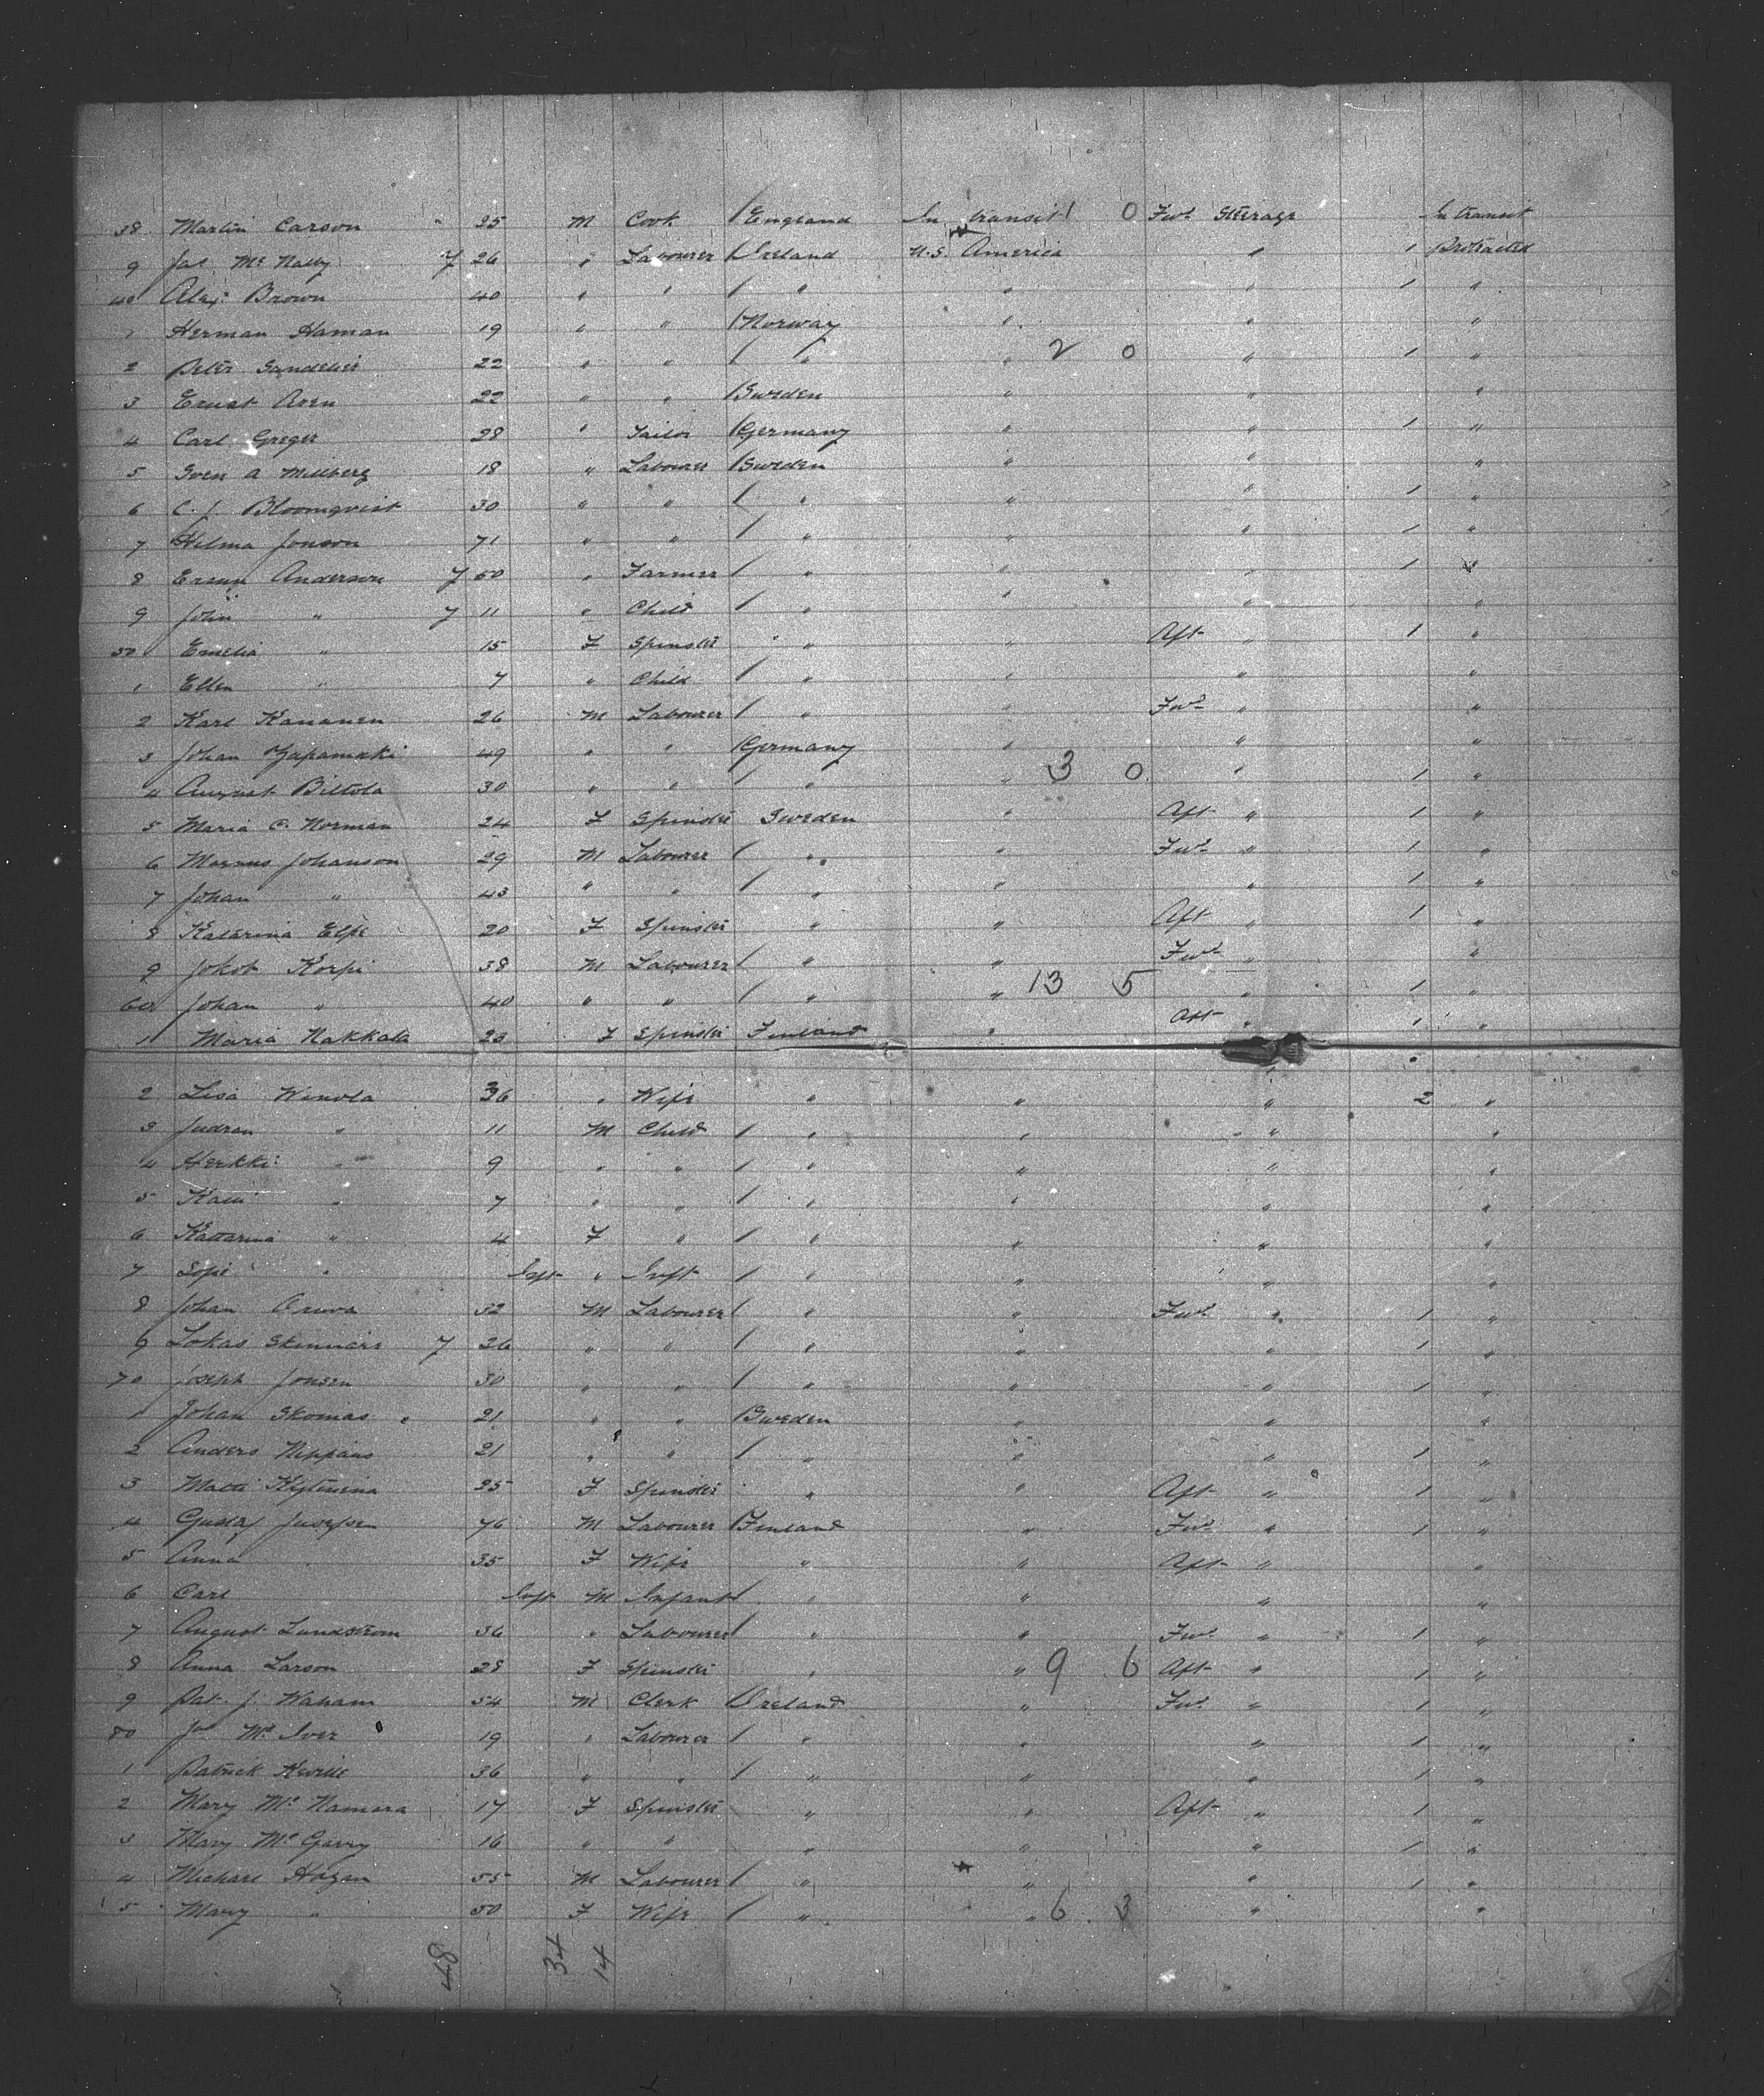 38 Martin Carson " 25 M Cook England In transit 1 0 Fwd Steerage In transit
9 Jas Mc Nally 7 26 " Labourer Ireland U.S. America " 1 Protracted
40 Alex Brown 40 " " " " " 1 "
1 Herman Haman 19 " " Norway " " "
2 Peter 22 " " " " 2 0 " 1 "
3 Ernst Aven 22 " " Sweden " " "
4 Carl Greger 28 " Tailor Germany " " 1 "
5 Sven A Millberg 18 " Labourer Sweden " " "
6 C. J. Bloomqvist 30 " " " " " 1 "
7 Hilma Jonson 71 " " " " " 1 "
8 Anderson 7 50 " Farmer " " " 1 "
9 John " 7 11 " Child " " " "
50 Emelia " 15 F Spinster " " Aft " 1 "
1 Ellen " 7 " Child " " " "
2 Karl Kananen 26 M Labourer " " Fwd " "
3 Johan 49 " " Germany " " "
4 August Biltola 30 " " " " 3 0 " 1 "
5 Maria C. Norman 24 F Spinster Sweden " Aft " 1 "
6 Magnus Johanson 29 M Labourer " " Fwd " 1 "
7 Johan " 43 " " " " " 1 "
8 Katarina Elpe 20 F Spinster " " Aft " 1 "
9 Jokob Korpi 38 M Labourer " " Fwd " "
60 Johan " 40 " " " " 13 5 " 1 "
1 Maria Nakkala 23 F Spinster Finland " Aft " 1 "
2 Lisa Winola 36 " Wife " " " 2 "
3 " 11 M Child " " " "
4 Herkki " 9 " " " " " "
5 " 7 " " " " " "
6 Kattarina " 4 F " " " " "
7 Sofie " Inft " Inft " " " "
8 Johan 32 M Labourer " " Fwd " 1 "
9 7 26 " " " " " 1 "
70 Joseph Jonsen 30 " " " " " 1 "
1 Johan Skomas " 21 " " Sweden " " "
2 Anders Nippais 21 " " " " " 1 "
3 Matti 25 F Spinster " " Aft " 1 "
4 Gustaf 46 M Labourer Finland " Fwd " 1 "
5 Anna 35 F Wife " " Aft " "
6 Carl Inft M Infant " " " "
7 August Lundstrom 36 " Labourer " " Fwd " 1 "
8 Anna Larson 28 F Spinster " " 9 6 Aft " 1 "
9 Pat. J. Waham 54 M Clerk Ireland " Fwd " 1 "
80 Jas Mc Iver 19 " Labourer " " " 1 "
1 Patrick Keville 36 " " " " " 1 "
2 Mary Mc Namara 17 F Spinster " " Aft " 1 "
3 Mary Mc Garry 16 " " " " " 1 "
4 Michael Hogan 55 M Labourer " " " 1 "
5 Mary " 50 F Wife " " 6 3 " "
48 34 14